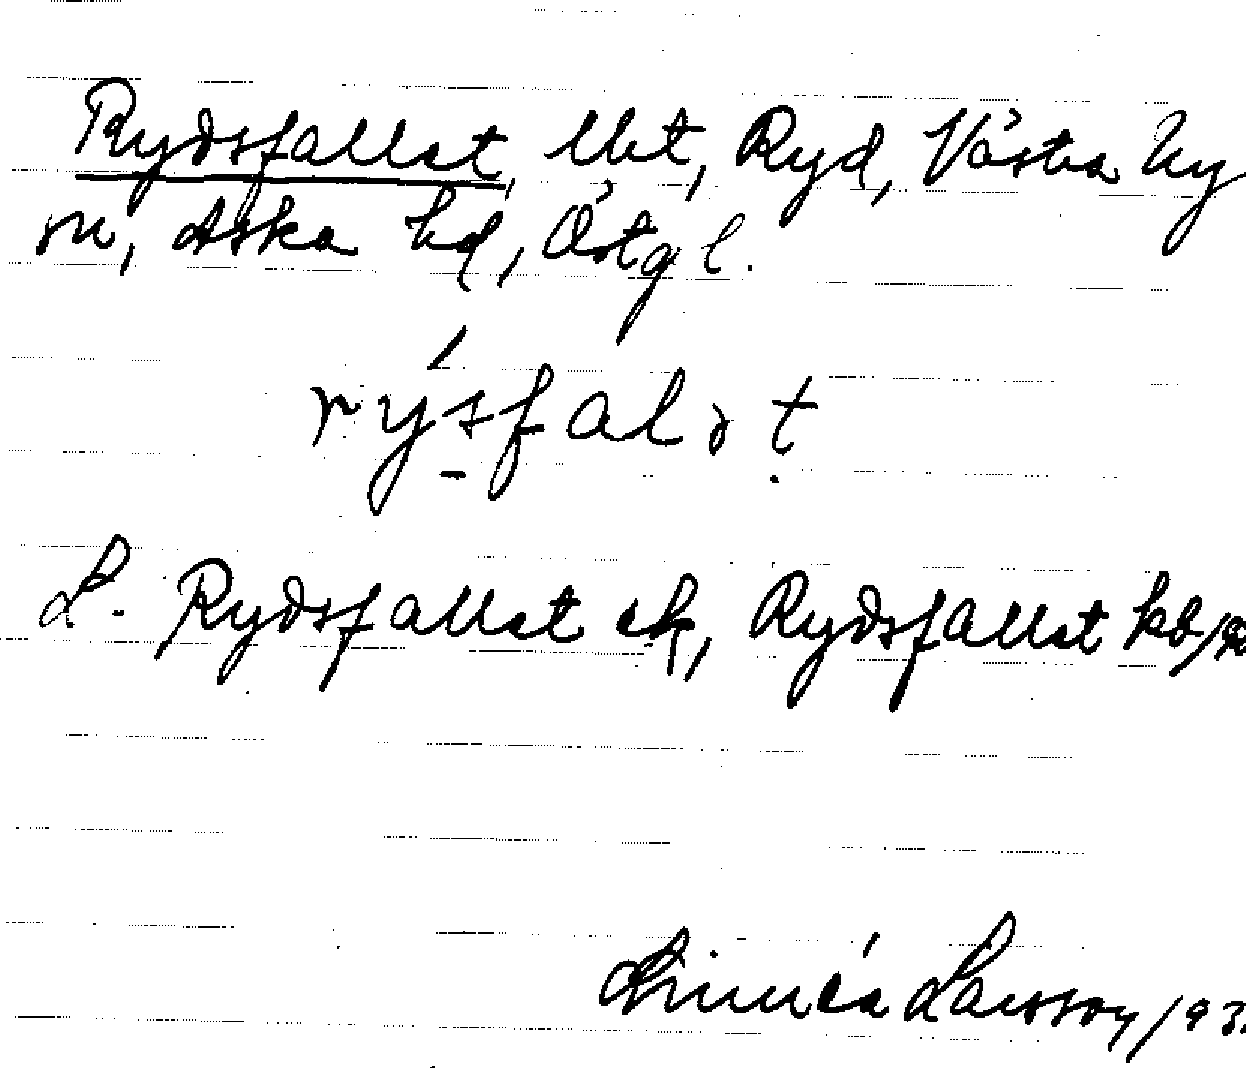 Rydsfallet, lht, Ryd, Västra Ny
sn, Aska hd, Östgl.
rýsfalət
L. Rydsfallet ek, Rydsfallet kb/
Linnéa Larsson, 193